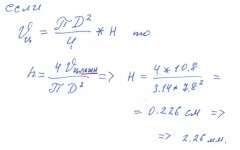 если
Vц = ПD² / 4 * H то
h = 4 Vцилин / ПD² => H = 4 * 10.8 / 3.14 * 7.8² =
= 0.226 см =>
=> 2.26 мм.